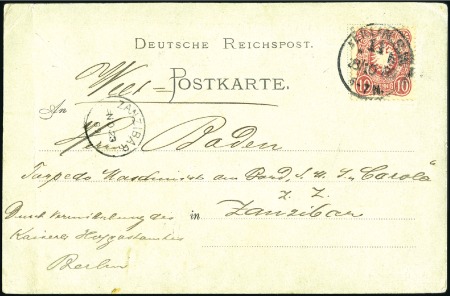 DEUTSCHE REICHSPOST.
Welt=POSTKARTE.
An
Herrn Boden
Torpedo Maschinist an Bord S. M. S. "Carola"
z. Z.
in Zanzibar
Durch Vermittelung des
Kaiserl. Hofpostamtes
Berlin
ZANZIBAR
10 10